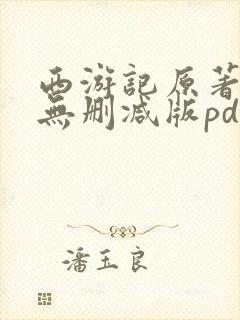 西游記原著
無删减版pd
潘玉良